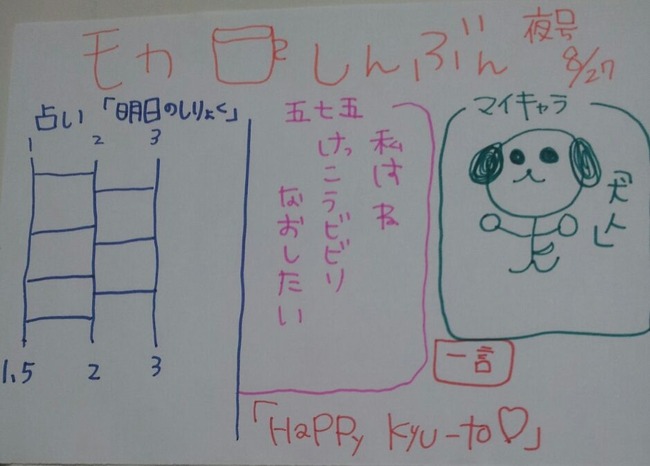 モカしんぶん
夜号
8/27
占い「明日のしりょく」
1 2 3
1,5 2 3
五七五
私はね
けっこうビビリ
なおしたい
マイキャラ
「犬人」
一言
「HaPPy Kyu-to♡」